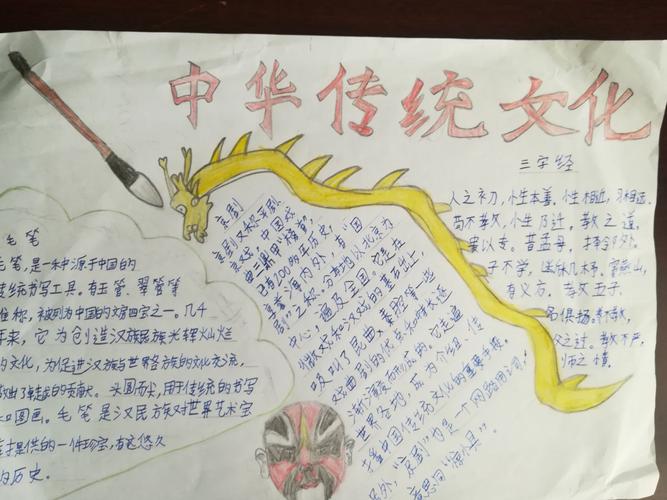 中华传统文化
三字经
人之初，性本善。性相近，习相远。
苟不教，性乃迁。教之道，
贵以专。昔孟母，择邻处。
子不学，断机杼。窦燕山，
有义方。教五子，
名俱扬。养不教，
父之过。教不严，
师之惰。
京剧
京剧又称平剧、
京戏，中国戏
曲三鼎甲"榜首"，
已有100多年历史，
享着海内外，有"国
剧"之称。分布地以北京为
中心，遍及全国。它是在
徽戏和汉戏的基础上，
吸叫了昆曲、秦腔等一些
戏曲剧的优点和特长逐
渐演变而形成的。它走遍
世界各地，成为介绍、传
播中国传统文化的重要手段。
另外，"京剧"也是一个网络用词，
意思同"惊人具"。
毛笔
毛笔，是一种源于中国的
传统书写工具。有玉管、翠管等
雅称，被列为中国的文房四宝之一。几千
年来，它为创造汉族民族光辉灿烂
的文化，为促进汉族与世界各族的文化交流，
做出了卓越的贡献。头圆而尖，用于传统的书写
和图画。毛笔是汉民族对世界艺术宝
库提供的一件珍宝，有这悠久
的历史。